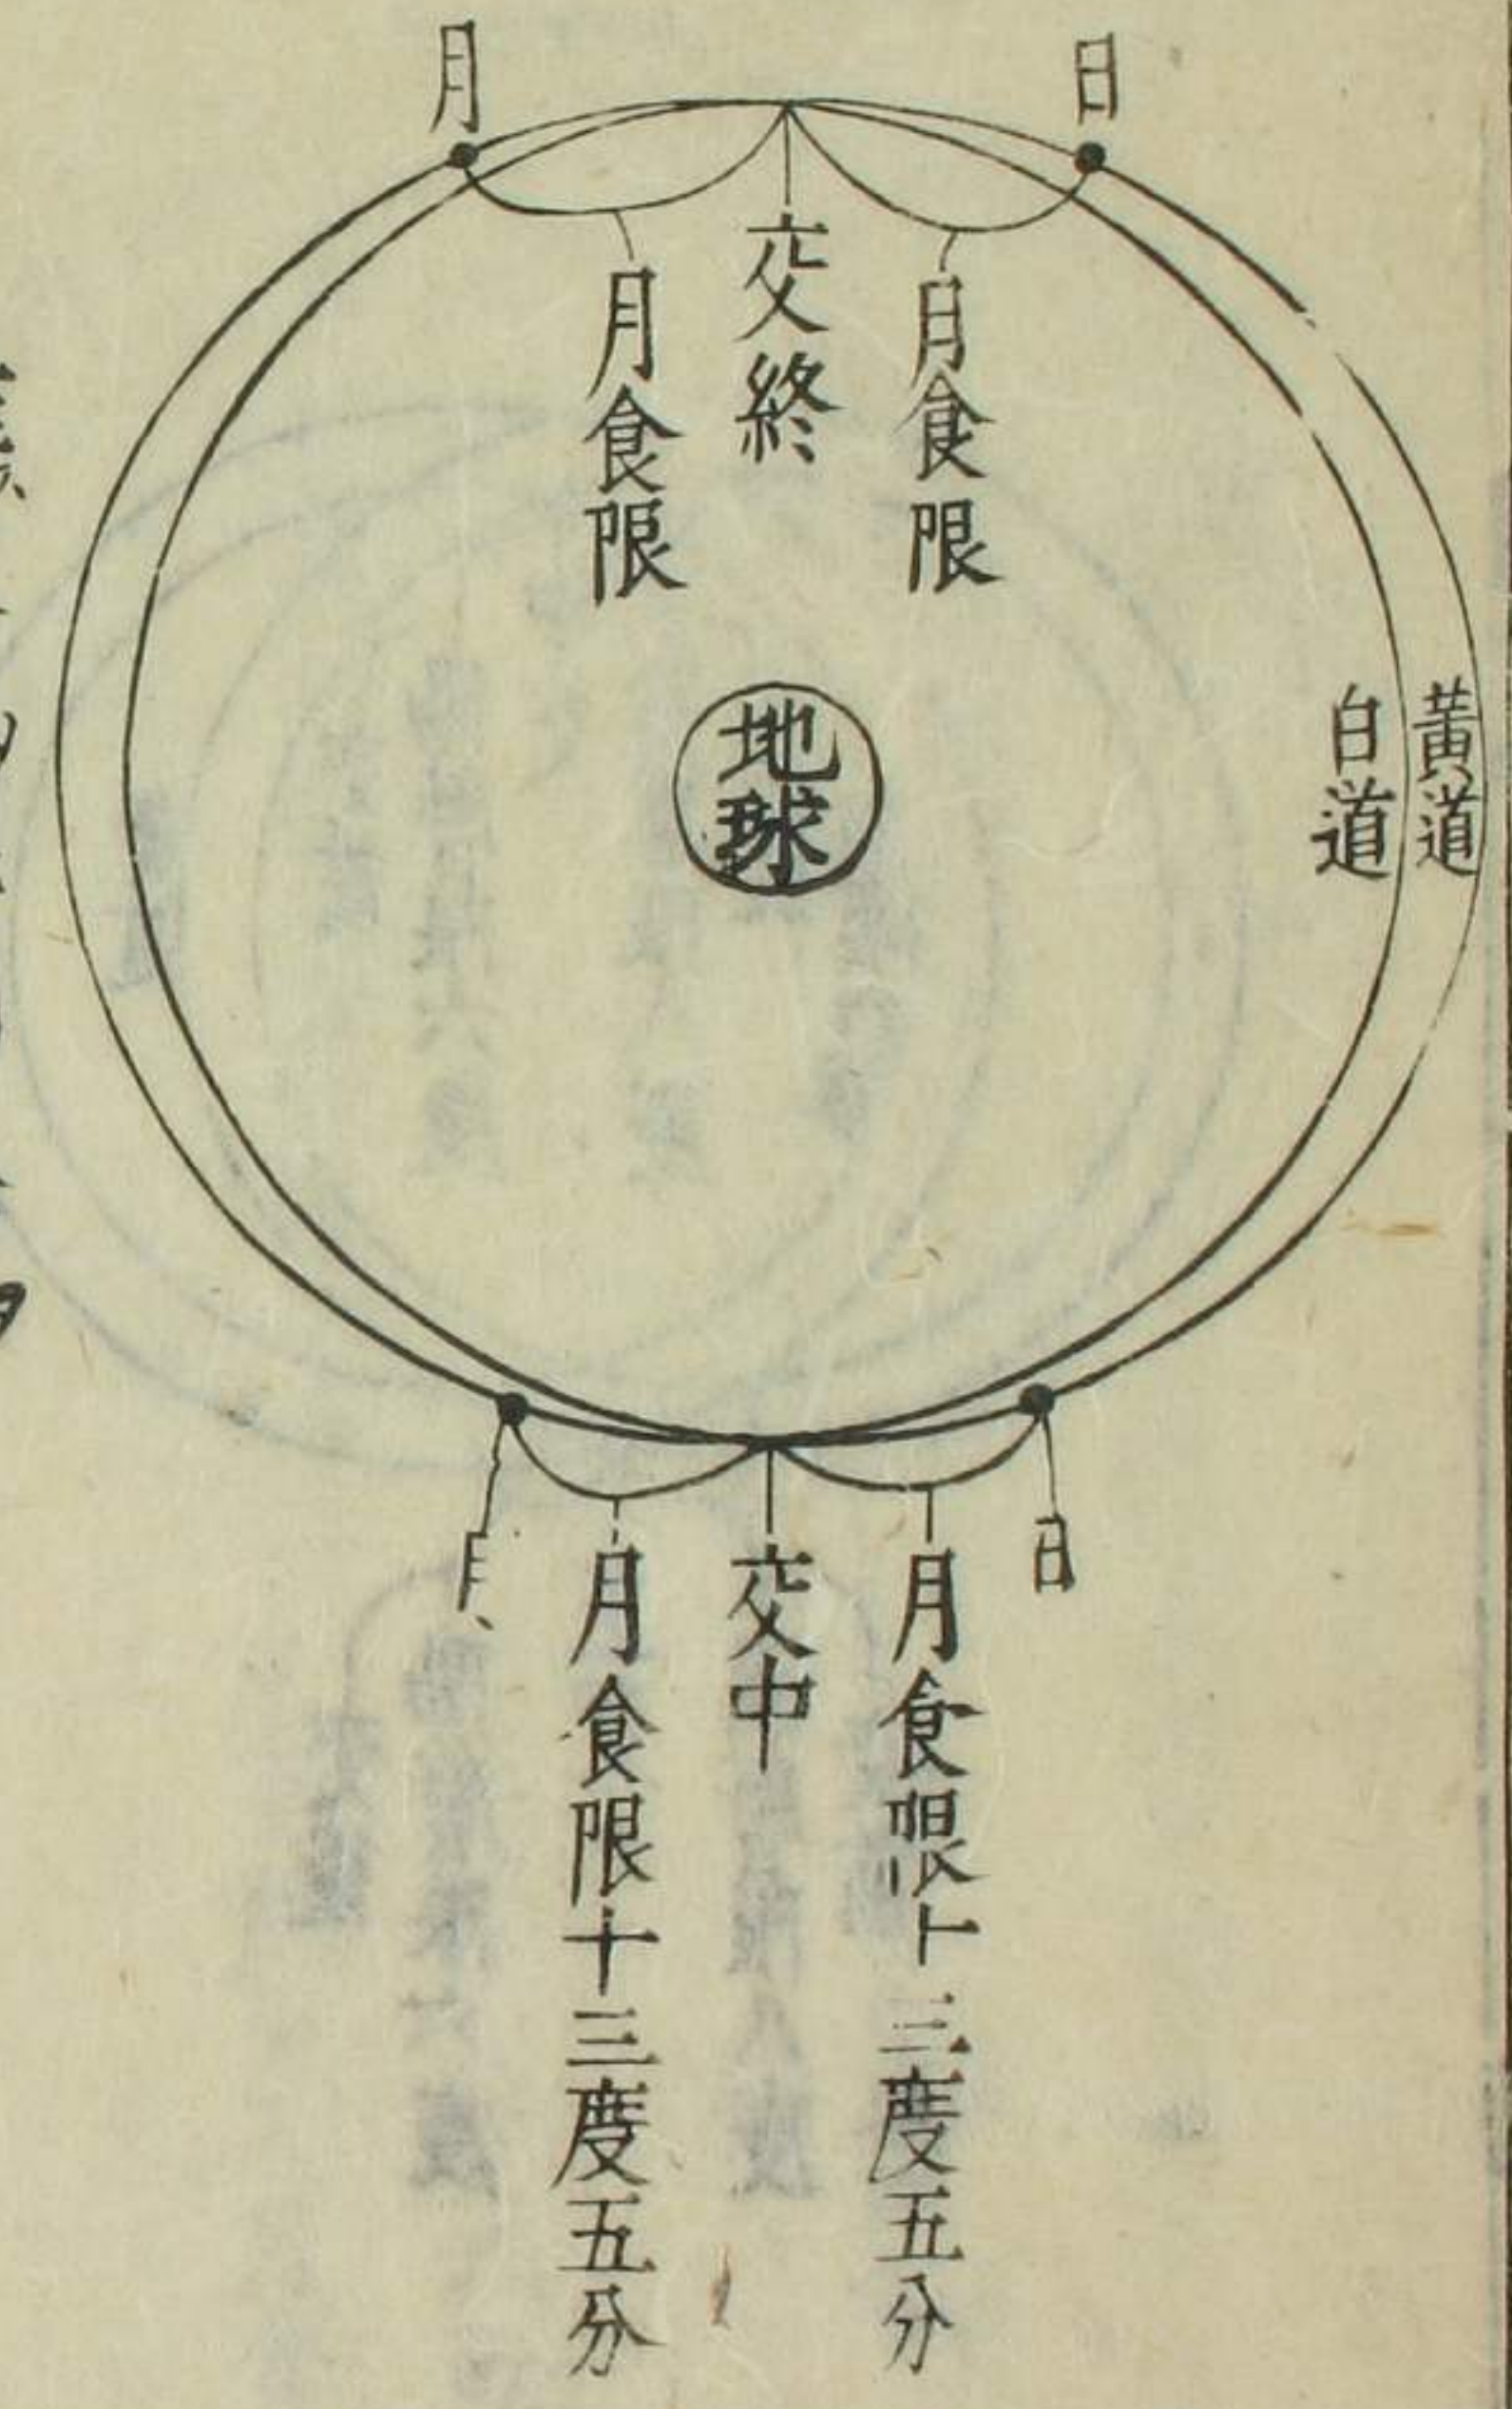 日
月
月食限
交終
月食限
黃道
白道
地球
日
月食限十三度五分
交中
月食限十三度五分
月